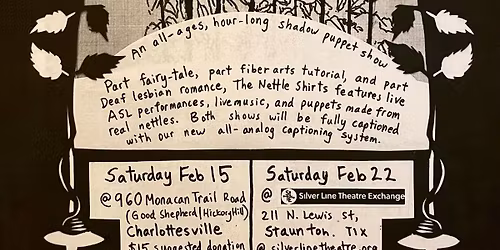 An all-ages, hour-long shadow puppet show
Part fairy-tale, part fiber arts tutorial, and part
Deaf lesbian romance, The Nettle Shirts features live
ASL performances, live music, and puppets made from
real nettles. Both shows will be fully captioned
with our new all-analog captioning system.
Saturday Feb 15
@ 960 Monacan Trail Road
(Good Shepherd/Hickory Hill)
Charlottesville
$15 suggested donation
Saturday Feb 22
@ Silver Line Theatre Exchange
211 N. Lewis St,
Staunton. TIX
@ silverlinetheatre.org